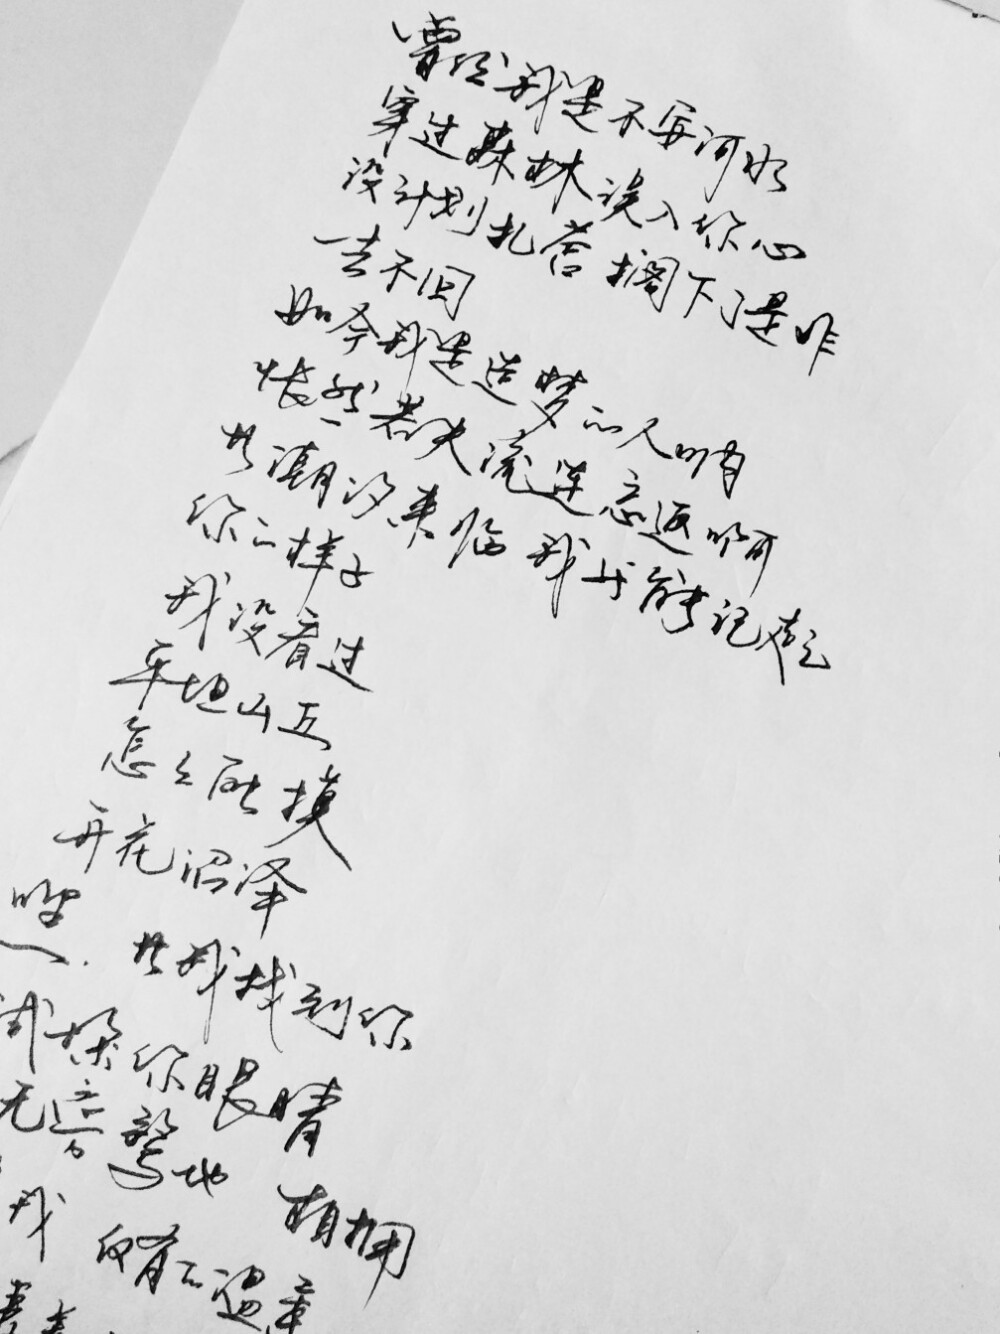 曾经我是不安河水
穿过森林误入你心
没计划扎营搁下了是非
一去不回
如今我是造梦的人呐
怅然若失流连忘返啊
等潮汐来临我才能记起
你的样子
我没看过
平坦山丘
怎么触摸
开花沼泽
嘿
等我找到你
试探你眼睛
无意惊地相拥
我 仅有的温柔